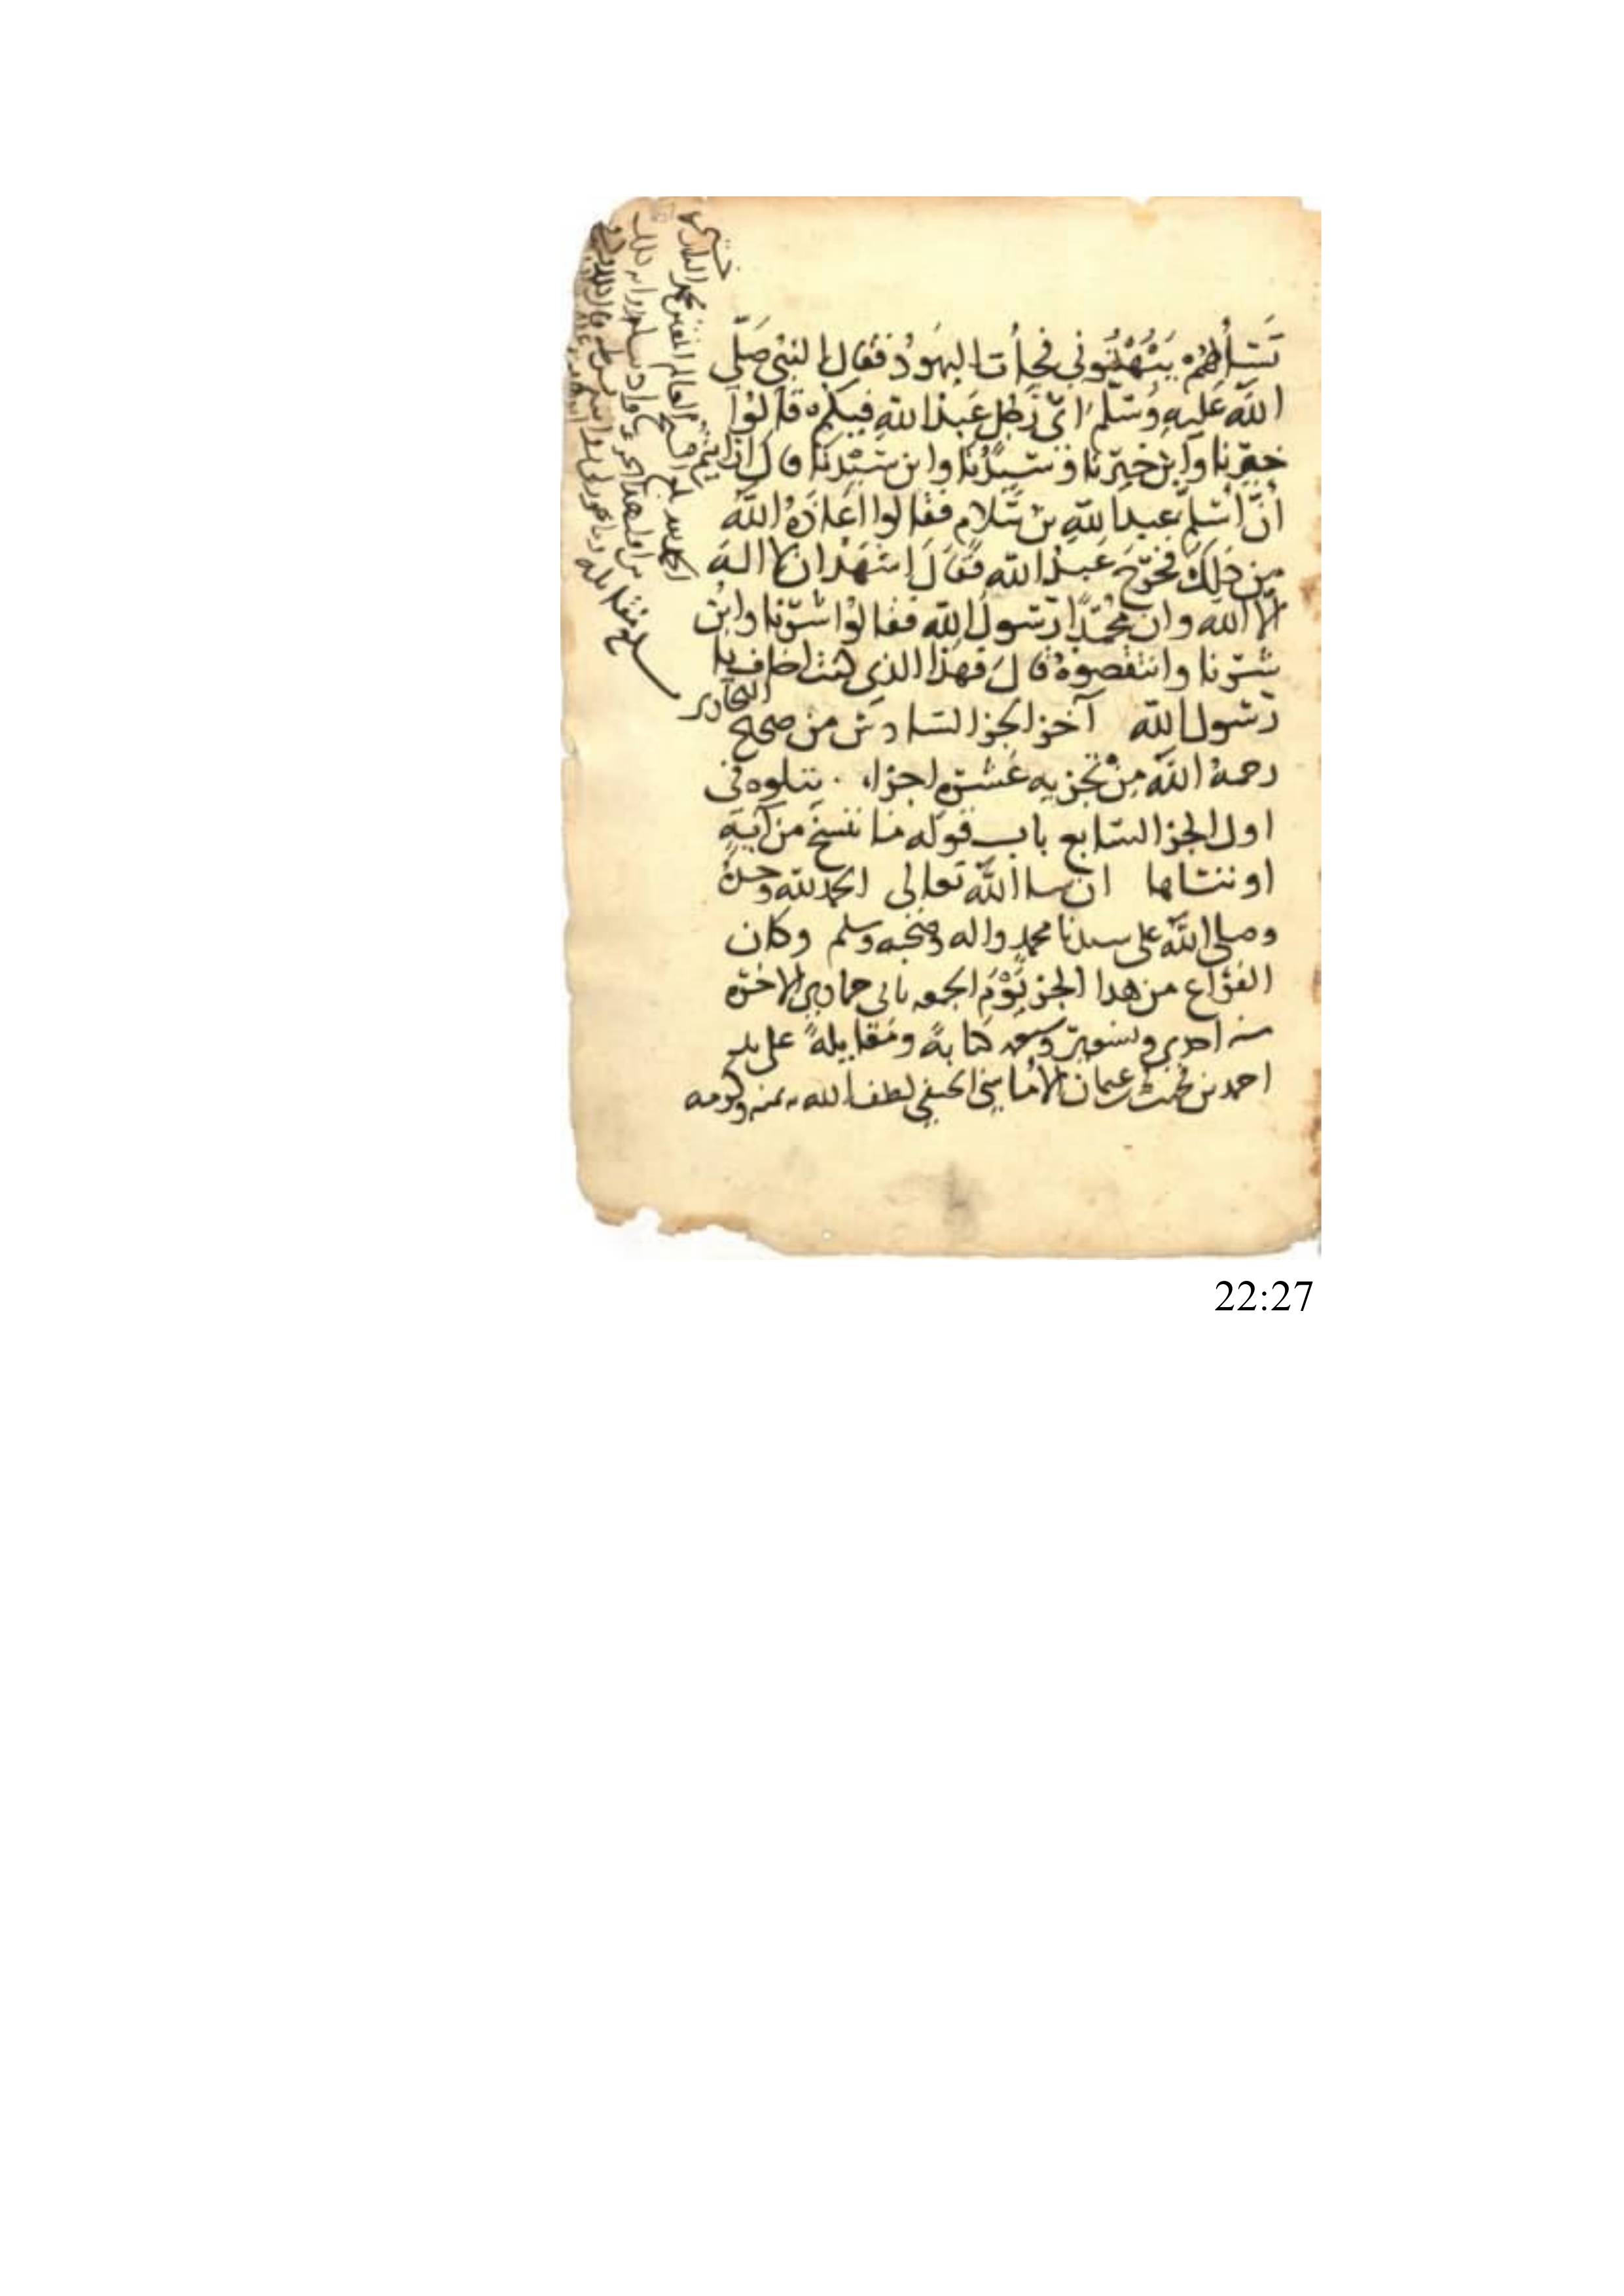 تسألهم يبهتوني فجأت اليهود فقال النبي صلى
الله عليه وسلم اي رجل عبد الله فيكم قالوا
خيرنا وابن خيرنا وسيدنا وابن سيدنا قال ارايتم
ان اسلم عبد الله بن سلام فقالوا اعاذه الله
من ذلك فخرج عبد الله فقال اشهد ان لا اله
الا الله وان محمدا رسول الله فقالوا شرنا وابن
شرنا وانتقصوه قال فهذا الذي كنت اخاف يا
رسول الله آخر الجز السادس من صحيح البخاري
رحمه الله من تجزيه عشره اجزاء يتلوه في
اول الجز السابع باب قوله ما ننسخ من آية
او ننساها ان سا الله تعالى الحمد لله وحده
وصلى الله على سيدنا محمد واله وصحبه وسلم وكان
الفراغ من هدا الجز يوم الجمعه ثاني جمادي الاخره
سنه احدي وتسعين وسبعمه كتابة ومقابلة على يد
احمد بن محمد بن عثمان الاماسي الحنفي لطف الله به بمنه وكرمه
الحمد لله بلغ الشيخ العالم المفنن محمد
من اول هذا الجزء
مقابله
22:27